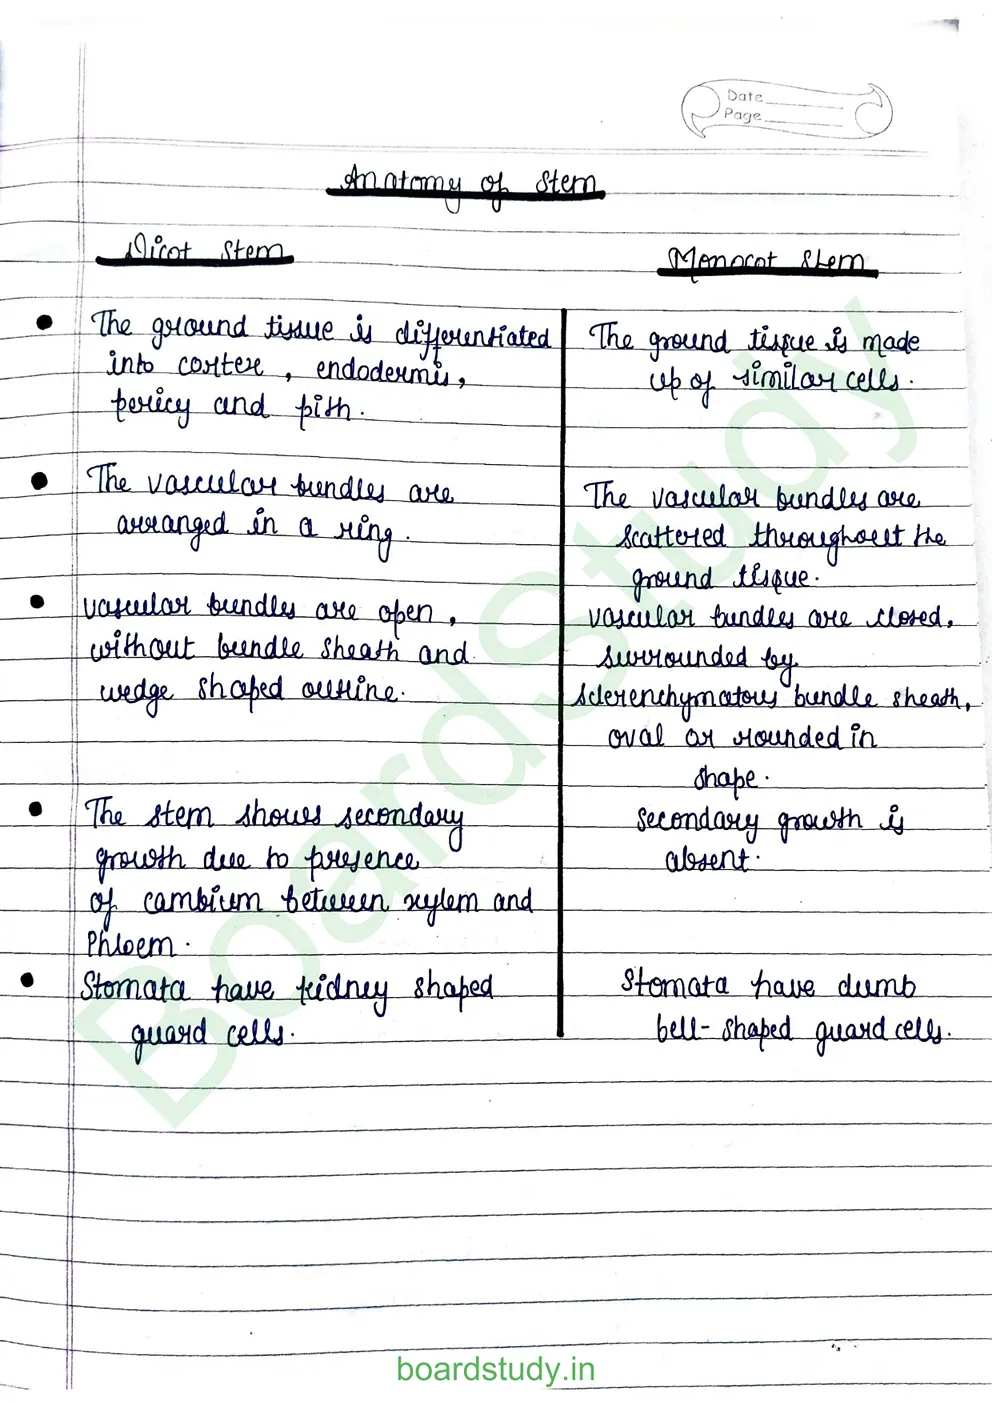 Date
Page
Anatomy of Stem
Dicot Stem
Monocot Stem
The ground tissue is differentiated
into cortex, endodermis,
pericy and pith.
The ground tissue is made
up of similar cells.
The vascular bundles are
arranged in a ring.
The vascular bundles are
scattered throughout the
ground tissue.
vascular bundles are open,
without bundle sheath and
wedge shaped outline.
vascular bundles are closed,
surrounded by
sclerenchymatous bundle sheath,
oval or rounded in
shape.
The stem shows secondary
growth due to presence
of cambium between xylem and
Phloem.
secondary growth is
absent.
Stomata have kidney shaped
guard cells.
Stomata have dumb
bell-shaped guard cells.
BoardStudy
boardstudy.in